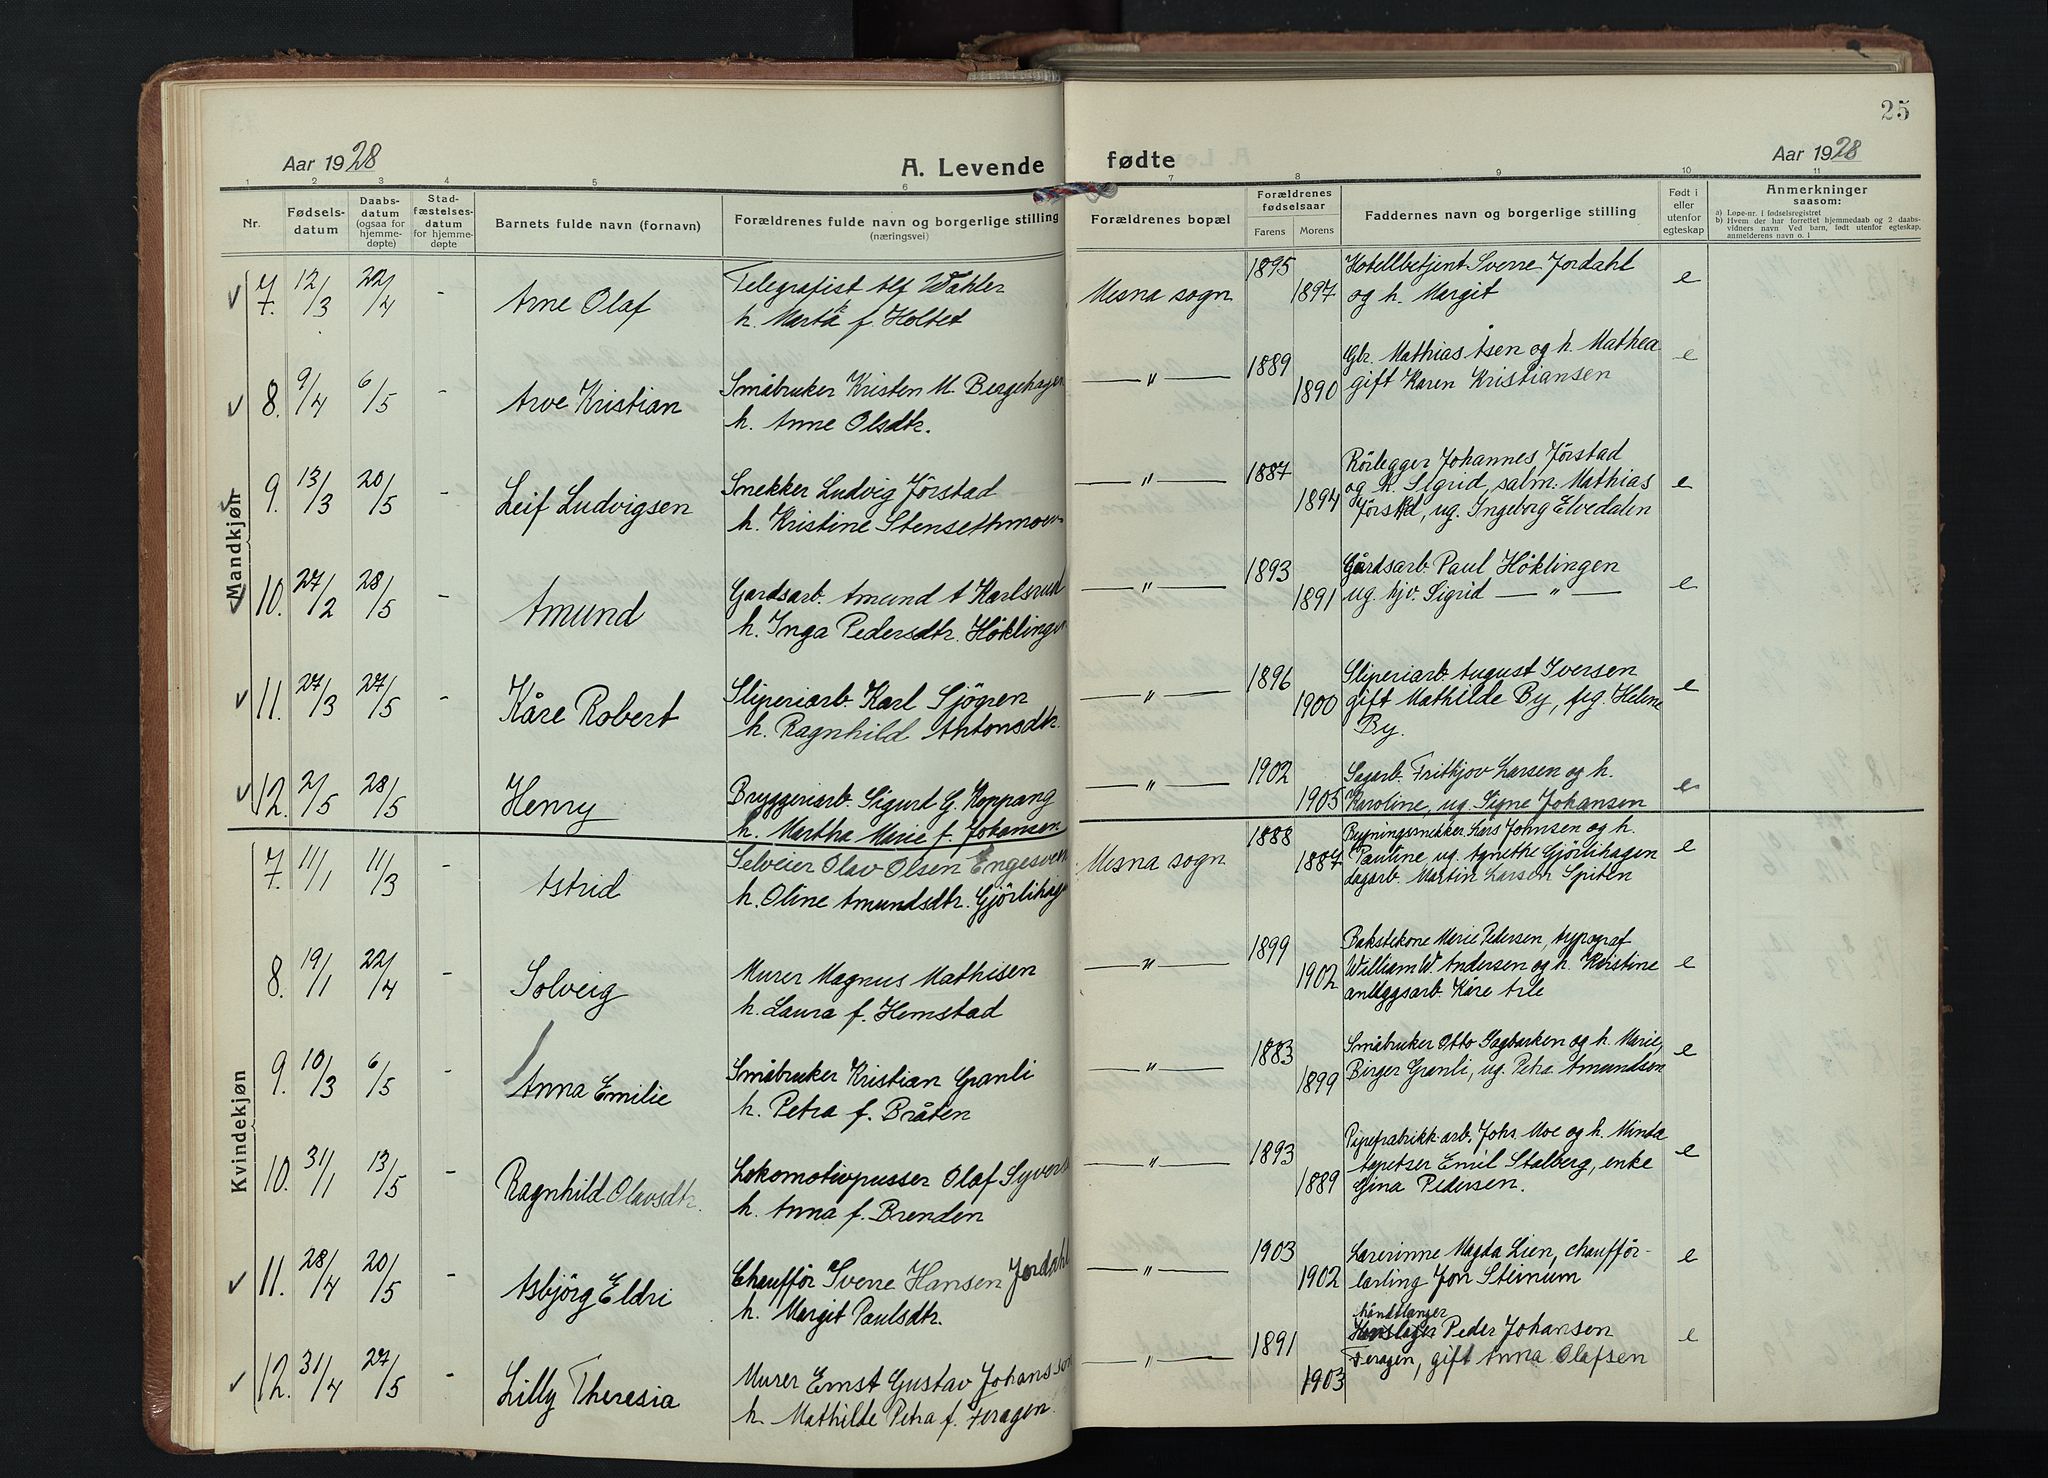 25
Aar 1928
A. Levende fødte
Aar 1928
1 2 3 4 5 6 7 8 9 10 11
Nr.
Fødsels-
datum
Daabs-
datum
(ogsaa for
hjemme-
døpte)
Stad-
fæstelses-
datum
for hjemme-
døpte
Barnets fulde navn (fornavn)
Forældrenes fulde navn og borgerlige stilling
(næringsvei)
Forældrenes bopæl
Forældrenes
fødselsaar
Farens Morens
Faddernes navn og borgerlige stilling
Født i
eller
utenfor
egteskap
Anmerkninger
saasom:
a) Løpe-nr. i fødselsregistret
b) Hvem der har forrettet hjemmedaab og 2 daabs-
vidners navn. Ved barn, født utenfor egteskap,
anmelderens navn o. l
Mandkjøn
7. 12/3 22/4 - Arne Olaf
Telegrafist Alf Wahler
h. Marta f. Holtet
Mesna sogn 1895 1897
Hotellbetjent Sverre Jordahl
og h. Margit
e
8. 9/4 6/5 - Arve Kristian
Småbruker Kristen M. Bergehagen
h. Anne Olsdtr.
— " — 1889 1890
Gbr. Mathias Åsen og h. Mathea
gift Karen Kristiansen
e
9. 13/3 20/5 - Leif Ludvigsen
Snekker Ludvig Jørstad
h. Kristine Stensethmoen
— " — 1887 1894
Rörlegger Johannes Jørstad
og h. Sigrid, salm. Mathias
Jørstad, ug. Ingeborg Elvedalen
e
10. 27/2 28/5 - Amund
Gårdsarb. Amund A Karlsrud
h. Inga Pedersdtr. Höklingen
— " — 1893 1891
Gårdsarb. Paul Höklingen
ug. hjv. Sigrid — " —
e
11. 27/3 27/5 - Kåre Robert
Sliperiarb. Karl Sjögren
h. Ragnhild Antonsdtr.
— " — 1896 1900
Sliperiarb. August Iversen
gift Mathilde By, pg. Helene
By.
e
12. 2/5 28/5 - Henry
Bryggeriarb. Sigurd G. Koppang
h. Martha Marie f. Johansen
— " — 1902 1905
Sagarb. Frithjov Larsen og h.
Karoline, ug. Signe Johansen
e
Kvindekjøn
7. 11/1 11/3 - Astrid
Selveier Olav Olsen Engesveen
h. Oline Amundsdtr. Gjörlihagen
Mesna sogn 1888 1887
Bygningssnekker Lars Johnsen og h.
Pauline ug. Agnethe Gjörlihagen
dagarb. Martin Larsen Spiten
e
8. 19/1 22/4 - Solveig
Murer Magnus Mathisen
h. Laura f. Hemstad
— " — 1899 1902
Bakstekone Marie Pedersen, typograf
William W. Andersen og h. Kristine
anleggsarb. Kåre Arle
e
9. 10/3 6/5 - Anna Emilie
Småbruker Kristian Granli
h. Petra f. Bråten
— " — 1883 1899
Småbruker Otto Sagbakken og h. Marie,
Birger Granli, ug. Petra Amundson
e
10. 31/1 13/5 - Ragnhild Olavsdtr.
Lokomotivpusser Olaf Syvers
h. Anna f. Brenden
— " — 1893 1889
Pipefabrikk-arb. Johs Moe og h. Minda
tapetser Emil Stalberg, enke
Gina Pedersen.
e
11. 28/4 20/5 - Asbjörg Eldri
Chaufför Sverre Hansen Jordahl
h. Margit Paulsdtr.
— " — 1903 1902
Lærerinne Magda Lien, chaufför-
lærling Jon Steinum
e
12. 31/4 27/5 - Lilly Theresia
Murer Ernst Gustav Johansson
h. Mathilde Petra f. Feragen.
— " — 1891 1903
Håndtlanger
Peder Johansen
Feragen, gift Anna Olafsen
e